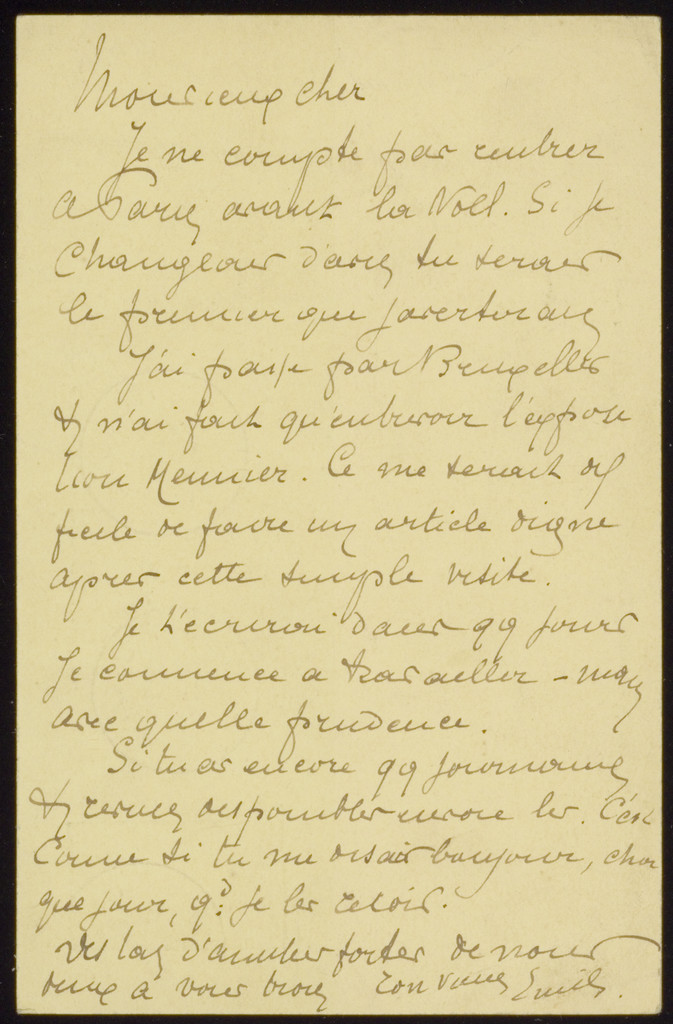 Monsieur cher
Je ne compte pas rentrer
à Paris avant la Noël. Si je
changeais d'avis tu serais
le premier que j'avertirais
J'ai passé par Bruxelles
& n'ai fait qu'entrevoir l'exposi
tion Meunier. Ce me serait dif
ficile de faire un article digne
après cette simple visite.
Je t'écrirai dans qq jours
Je commence a travailler - mais
avec quelle prudence.
Si tu as encore qq journaux
& revues disponibles envoie les. C'est
comme si tu me disais bonjour, cha
que jour, qd je les reçois.
d'amitiés fortes de nous
deux à vous trois Ton vieux Emile.